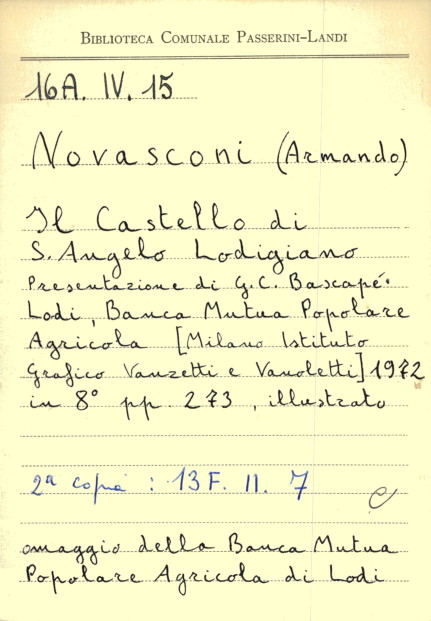 BIBLIOTECA COMUNALE PASSERINI-LANDI
16A. IV. 15
Novasconi (Armando)
Il Castello di
S. Angelo Lodigiano
Presentazione di G.C. Bascapé.
Lodi, Banca Mutua Popolare
Agricola [Milano Istituto
Grafico Vanzetti e Vanoletti] 1972
in 8° pp. 273, illustrato
2ª copia : 13 F. II. 7
omaggio della Banca Mutua
Popolare Agricola di Lodi